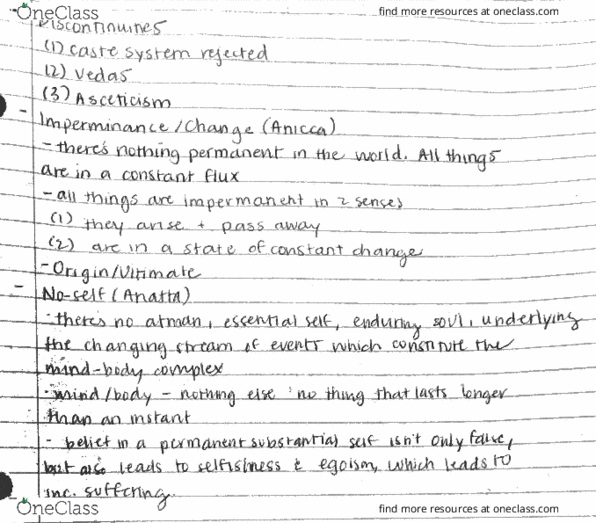 OneClass
find more resources at oneclass.com
Discontinuines
(1) caste system rejected
(2) Vedas
(3) Asceticism
- Imperminance/Change (Anicca)
- there's nothing permanent in the world. All things
are in a constant flux
- all things are impermanent in 2 senses
(1) they arise + pass away
(2) are in a state of constant change
- Origin/Ultimate
- No-self (Anatta)
· there's no atman, essential self, enduring soul, underlying
the changing stream of events which constitute the
mind-body complex
· mind/body - nothing else no thing that lasts longer
than an instant
- belief in a permanent substantial self isn't only false,
but also leads to selfishness & egoism, which leads to
inc. suffering.
OneClass
find more resources at oneclass.com